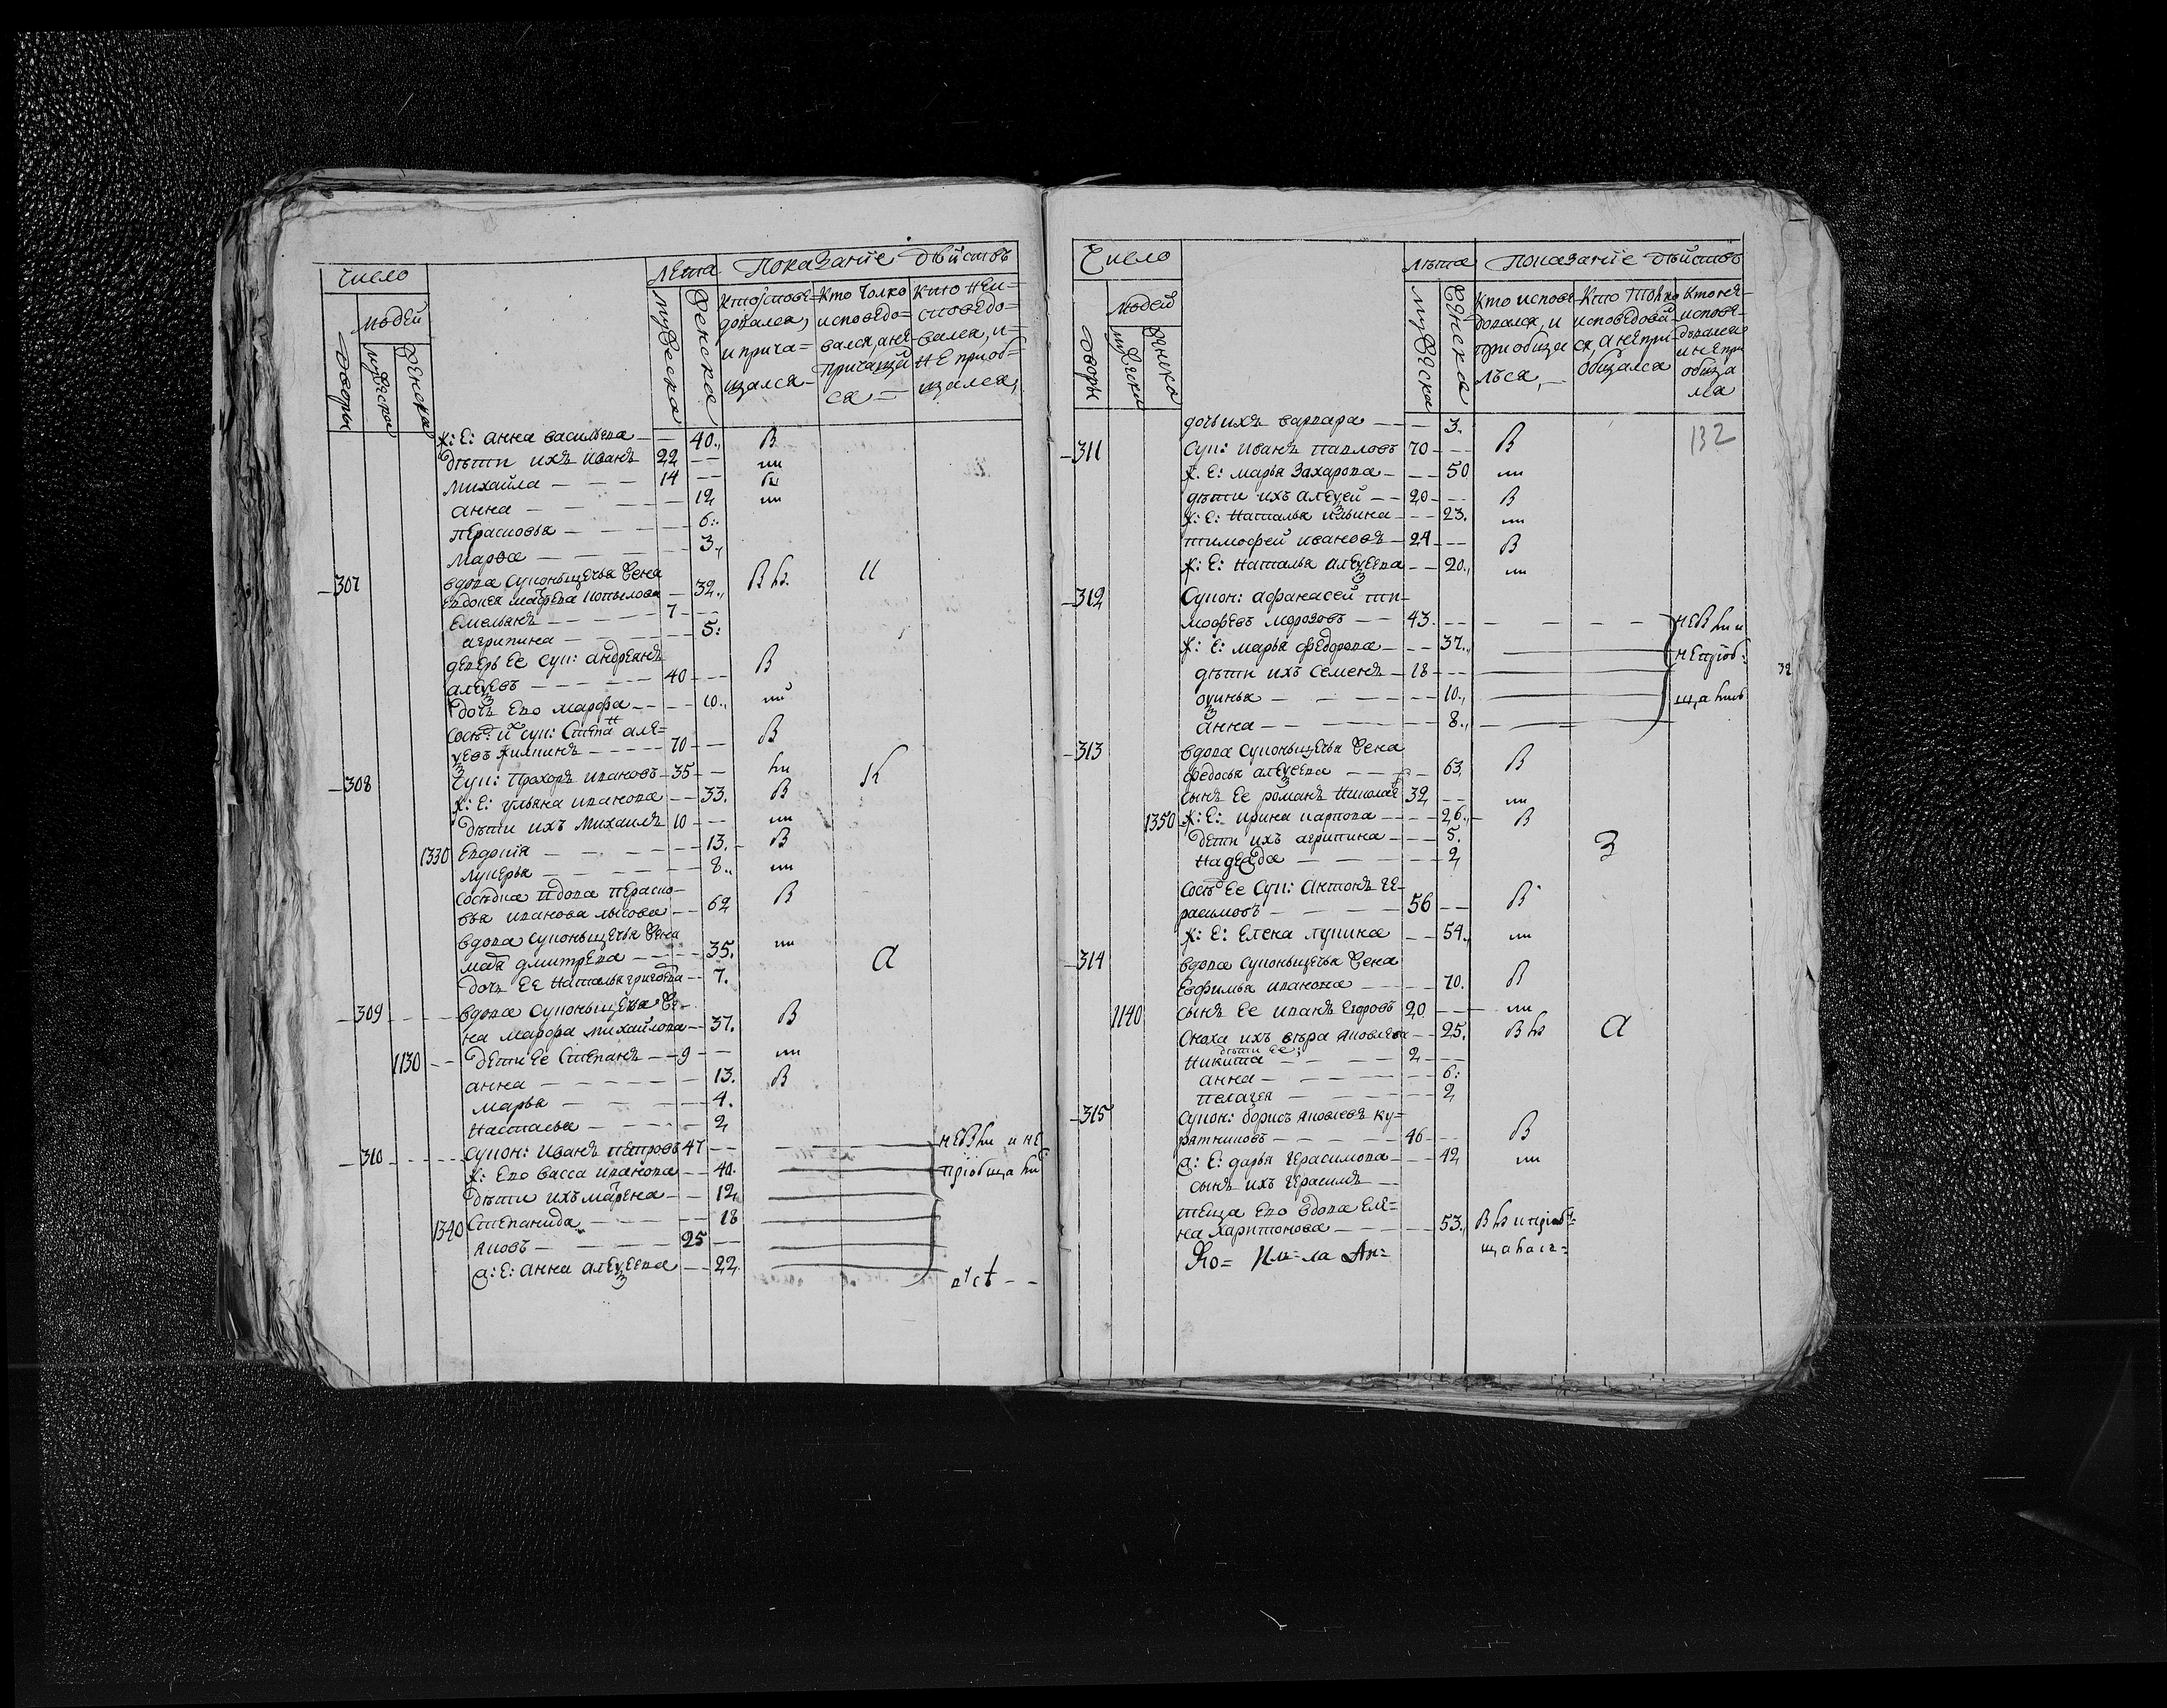 Число
Лета
Показание действъ
людей
Дворы
мужеска
женска
мужеска
женска
Кто исповедовался, и прича=щался
Кто толко исповедо=вался, а не причащался
Кто не исповедо=вался, и не приоб=щался
ж: е: анна васильева — — 40. В
дети ихъ иванъ 22 — —
михайла — — — 14 —
анна — — — 12
перасковья — — — 6.
марѳа — — — 3.
307 вдова суконьщечья жена
евдокея матфеева копылова — 32.
емельянъ — — — 7 —
агрипина — — — 5:
деверь ее сук: андреянъ
алексеевъ — — — 40 — — В
дочь ево марфа — — 10.
сосед их сук: степан але=
ксеевъ жилкинъ — — — 70 — — В
308 сук: прохоръ ивановъ — 35 — —
ж: е: ульяна иванова — — 33. В
дети ихъ михаилъ 10 — —
1330 евдокия — — — 13. В
лукерья — — — 8.
соседка вдова пераско=
вья иванова лысова — — 62 В
вдова суконьщечья жена
дмитрева — — — 35. а
дочь ее наталья григорева — 7.
309 вдова суконьщечья же=
на марфа михайлова — 37. В
1130 дети ее степанъ — — 9 —
анна — — — 13. В
марья — — — 4.
настасья — — — 2
310 сукон: иванъ петровъ 47 — —
ж: ево васса иванова — — 40.
дети ихъ матрена — — 12
1340 степанида — — — 18
яковъ — — — 25 —
ж: е: анна алексеева — — 22
Число
лета
показание действъ
людей
Дворы
мужеска
женска
мужеска
женска
Кто испове=довался, и приобща лься
Кто токмо исповедовался, а не при=общался
Кто не испове=довался и не приобща лся
132
дочь ихъ варвара — — 3.
311 сук: иванъ павловъ 70 — — В
ж: е: марья захарова — — 50
дети ихъ алексей — — 20 — — В
ж: е: наталья ильина — — 23.
тимофей ивановъ — 24 — — В
ж: е: наталья алексеева — — 20.
312 сукон: афанасей ти=
мофеевъ морозовъ — — 43.
ж: е: марья федорова — — 37.
32
дети ихъ семенъ — 18 — —
оксинья — — — 10.
анна — — — 8.
313 вдова суконьщечья жена
федосья алексеева — — — 63. В
сынъ ее романъ николаев 32 — —
1350 ж: е: ирина карпова — — — 26. В
дети ихъ агрипина — — — 5.
надежда — — — 2 З
сосед ее сук: антонъ ге=
расимовъ — — — 56 — — В
ж: е: елена лукина — — 54.
314 вдова суконьщечья жена
евфимья иванова — — — 70. В
1140 сынъ ее иванъ егоровъ 20 — —
сноха ихъ вера яковлева — — 25. а
дети ее;
никита — — — 2 — —
анна — — — 6:
пелагея — — — 2
315 сукон: борисъ яковлевъ ку=
рятниковъ — — — 46 — — В
ж: е: дарья герасимова — — — 42
сынъ ихъ герасимъ — —
теща ево вдова еле=
на харитонова — — — 53.